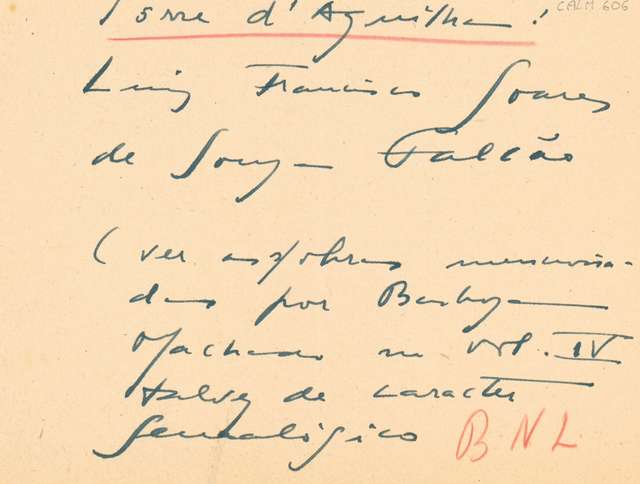 Torre d'Aguilha!
CALM 606
Luiz Francisco Soares
de Souza Falcão
(ver as obras menciona-
das por Barboza
Machado no vol. IV
talvez de caracter
genealógico
B. N. L.